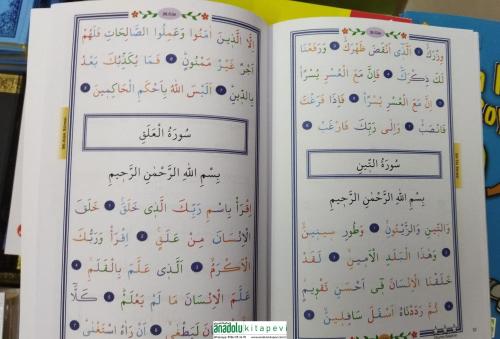 وِزْرَكَۙ ﴿٢﴾ اَلَّذٖٓي اَنْقَضَ ظَهْرَكَۙ ﴿٣﴾ وَرَفَعْنَا
لَكَ ذِكْرَكَۜ ﴿٤﴾ فَاِنَّ مَعَ الْعُسْرِ يُسْرًاۙ
﴿٥﴾ اِنَّ مَعَ الْعُسْرِ يُسْرًاۜ ﴿٦﴾ فَاِذَا فَرَغْتَ
فَانْصَبْۙ ﴿٧﴾ وَاِلٰى رَبِّكَ فَارْغَبْ ﴿٨﴾
سُورَةُ التّٖينِ
بِسْمِ اللّٰهِ الرَّحْمٰنِ الرَّحٖيمِ
وَالتّٖينِ وَالزَّيْتُونِۙ ﴿١﴾ وَطُورِ سٖينٖينَۙ
﴿٢﴾ وَهٰذَا الْبَلَدِ الْاَمٖينِۙ ﴿٣﴾ لَقَدْ
خَلَقْنَا الْاِنْسَانَ فٖٓي اَحْسَنِ تَقْوٖيمٍۘ
﴿٤﴾ ثُمَّ رَدَدْنَاهُ اَسْفَلَ سَافِلٖينَۙ ﴿٥﴾
اِلَّا الَّذٖينَ اٰمَنُوا وَعَمِلُوا الصَّالِحَاتِ فَلَهُمْ
اَجْرٌ غَيْرُ مَمْنُونٍۜ ﴿٦﴾ فَمَا يُكَذِّبُكَ بَعْدُ
بِالدّٖينِۜ ﴿٧﴾ اَلَيْسَ اللّٰهُ بِاَحْكَمِ الْحَاكِمٖينَ ﴿٨﴾
سُورَةُ الْعَلَقِ
بِسْمِ اللّٰهِ الرَّحْمٰنِ الرَّحٖيمِ
اِقْرَأْ بِاسْمِ رَبِّكَ الَّذٖي خَلَقَۚ ﴿١﴾ خَلَقَ
الْاِنْسَانَ مِنْ عَلَقٍۚ ﴿٢﴾ اِقْرَأْ وَرَبُّكَ
الْاَكْرَمُۙ ﴿٣﴾ اَلَّذٖي عَلَّمَ بِالْقَلَمِۙ ﴿٤﴾
عَلَّمَ الْاِنْسَانَ مَا لَمْ يَعْلَمْۜ ﴿٥﴾ كَلَّٓا
لَيَطْغٰىۙ ﴿٦﴾ اَنْ رَاٰهُ اسْتَغْنٰىۜ ﴿٧﴾
anadolukitapevi